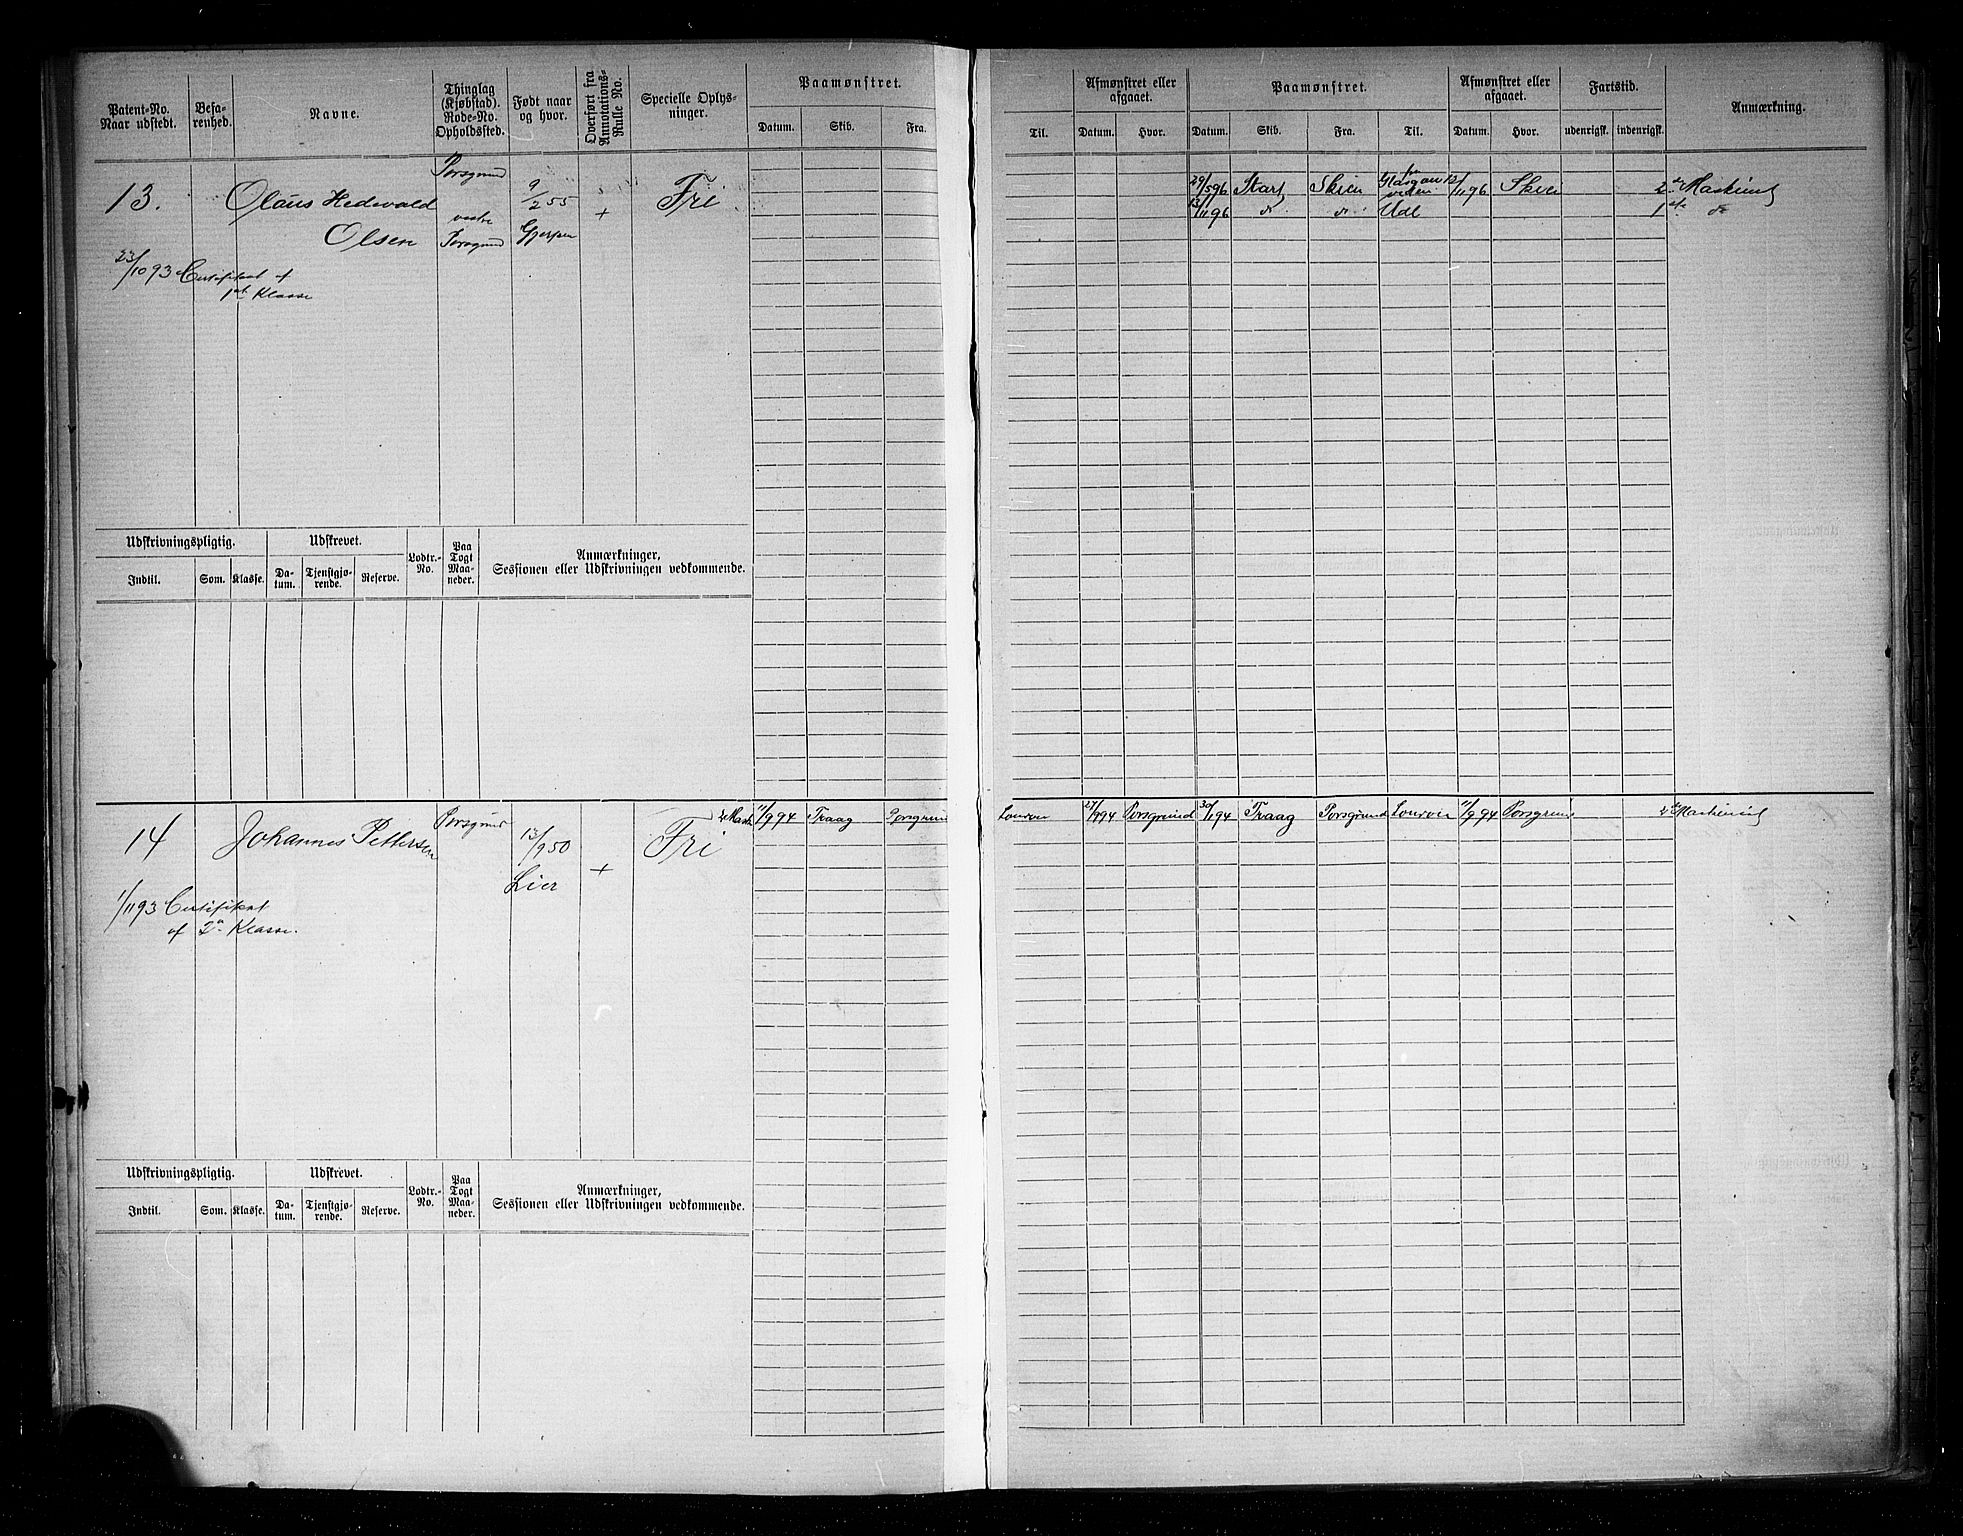 Patent-No. Naar udstedt. Befarenhed. Navne. Thinglag (Kjøbstad). Rode-No. Opholdssted. Født naar og hvor. Overført fra Annotations-Rulle No. Specielle Oplysninger. Paamønstret. Datum. Skib. Fra.
13. Olaus Hedevald Olsen Porsgrund vestre Porsgrund 9/2 55 Gjerpen + Fri
23/10 93 Certifikat af
1ste Klasse
Udskrivningspligtig. Indtil. Som. Klasse. Udskrevet. Datum. Tjenstgjørende. Reserve. Lodtr.-No. Paa Togt Maaneder. Anmærkninger, Sessionen eller Udskrivningen vedkommende.
14 Johannes Pettersen Porsgrund 13/9 50 Lier + Fri 11/9 94 Traag Porsgrund
1/11 93 Certifikat
af 2den Klasse.
Udskrivningspligtig. Indtil. Som. Klasse. Udskrevet. Datum. Tjenstgjørende. Reserve. Lodtr.-No. Paa Togt Maaneder. Anmærkninger, Sessionen eller Udskrivningen vedkommende.
Til. Afmønstret eller afgaaet. Datum. Hvor. Paamønstret. Datum. Skib. Fra. Til. Afmønstret eller afgaaet. Datum. Hvor. Fartstid. udenrigsk. indenrigsk. Anmærkning.
29/5 96 Start Skien 13/11 96 Skien 2den Maskinist
13/11 96 do do Udl 1ste do
Porsgrund Traag Porsgrund 11/9 94 Porsgrund 2den Maskinist